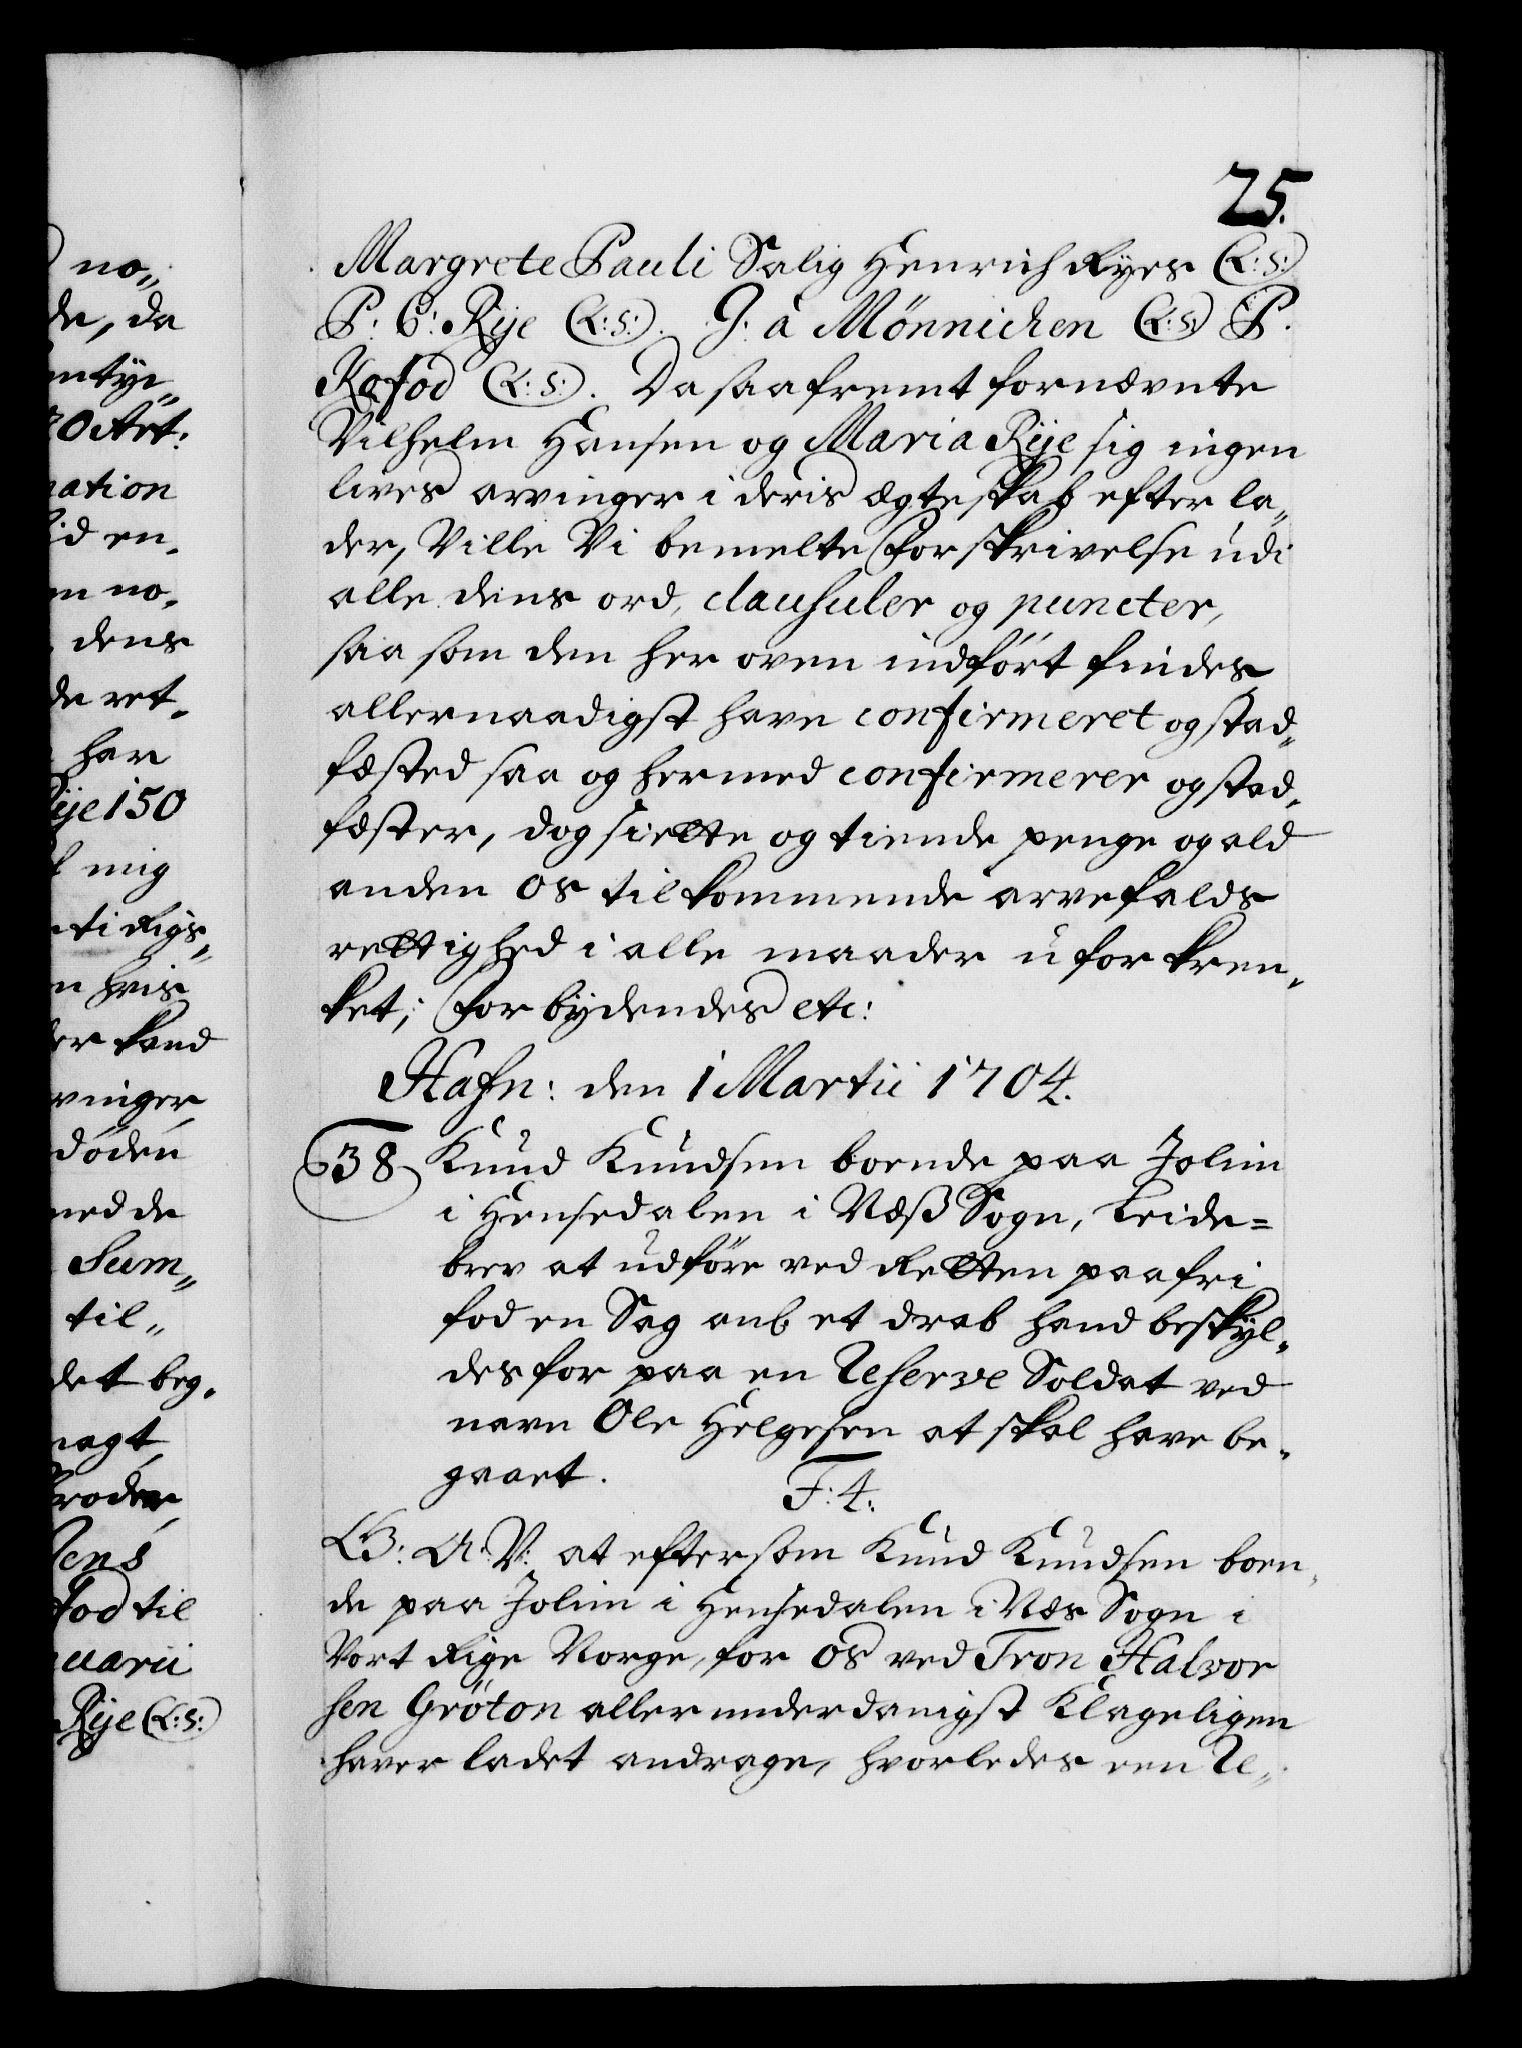 no„
de, da
ntye„
30 Art:
nation
id en„
m no„
dens
de ret„
har
Rije 150
mig
ti Rigs„
n hvis
der kand
rvinger
döden
med de
Sum„
til„
det beg„
magt
broder
Jens
fod til
uarii
Rije (L:S:)
25.
Margrete Pauli Salig Henrich Ryes (L:S:)
P: C: Rije (L:S:). J: à Mönnichen (L:S:) P.
Kofod (L:S:). Da saafremt fornævnte
Vilhelm Hansen og Maria Rije sig ingen
lives arvinger i deris ægteskab efter la„
der, Ville Vi bemelte Forskrivelse udi
alle dens ord, clausuler og puncter,
saa som den her oven indfört findes
allernaadigst have confirmeret og stad„
fæsted saa og hermed confirmerer og stad„
fæster, dog siette og tiende penge og ald
anden os tilkommende arvefalds
rettighed i alle maader uforkren„
ket; Forbydendes etc:
Hafn: den 1 Martii 1704.
38 Knud Knudsen boende paa Jolim
i Hensedalen i Næß Sogn, Leide=
brev at udföre ved Retten paa fri
fod en Sag anb et drab hand beskyl„
des for paa en Reserve Soldat ved
navn Ole Helgesen at skal have be„
gaaet. F: 4:
G: A: V: at eftersom Knud Knudsen boen„
de paa Jolim i Hensedalen i Næs Sogn i
Vort Rige Norge, for os ved Tron Halvor
sen Gröton allerunderdanigst Klageligen
haver ladet andrage, hvorledes een Re„